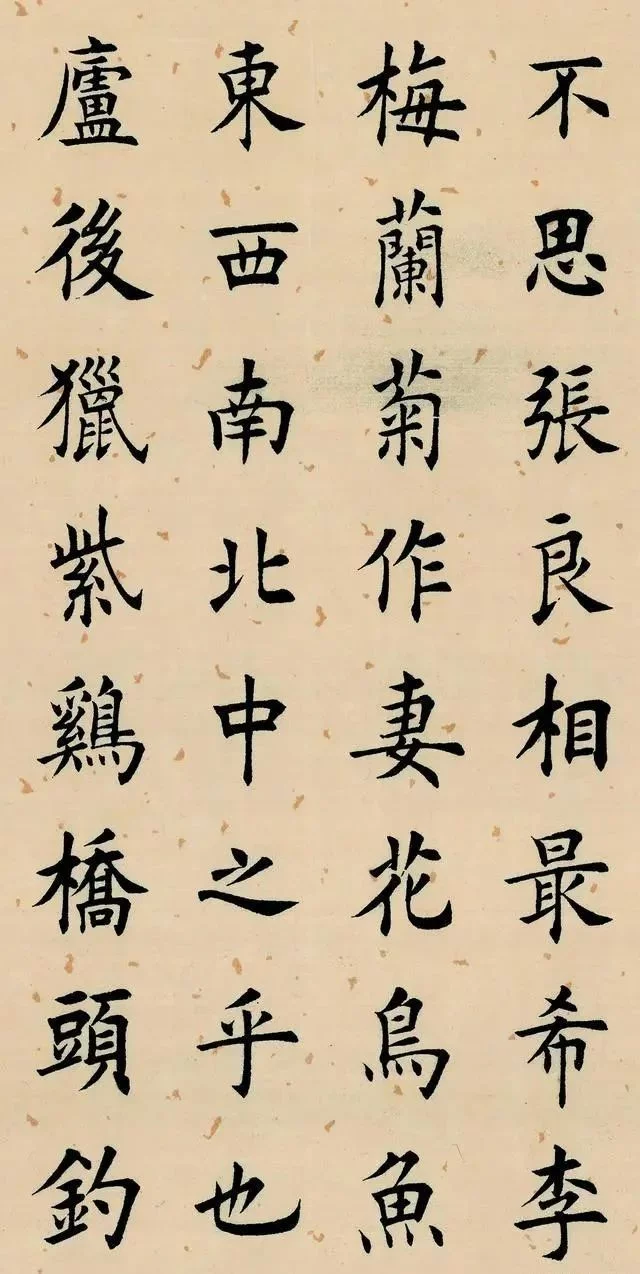 不思張良相最希李
梅蘭菊作妻花鳥魚
東西南北中之乎也
廬後獵紫鷄橋頭釣